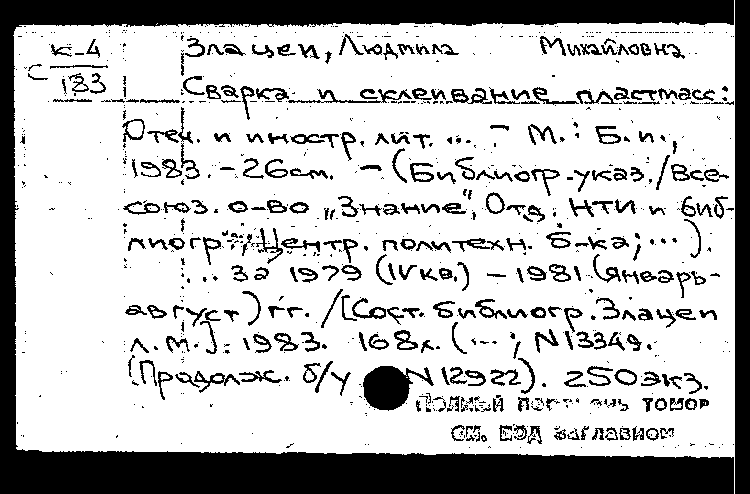 К-4
С 183
Злацен, Людмила Михайловна
Сварка и склеивание пластмасс:
Отеч. и иностр. лит. ... - М.: Б. и.,
1983. - 26см. - (Библиогр. указ. / Все-
союз. о-во „Знание“, Отд. НТИ и биб-
лиогр. Центр. политехн. б-ка; ...).
... за 1979 (IV кв.) - 1981 (январь-
август) гг. / [Сост. библиогр. Злацен
Л. М.]. 1983. 168 л. (...; N 13349.
(Продолж. б/у N 12922). 250 экз.
ПОЛНЫЙ ТОМОВ
СМ. ПОД ЗАГЛАВИЕМ